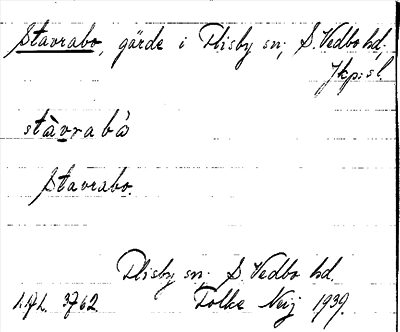 Stavrabo, gärde i Flisby sn, S. Vedbo hd,
Jkp:s l.
stàvrabà
Stavrabo.
Flisby sn, S Vedbo hd.
3762. Folke Neij 1939.